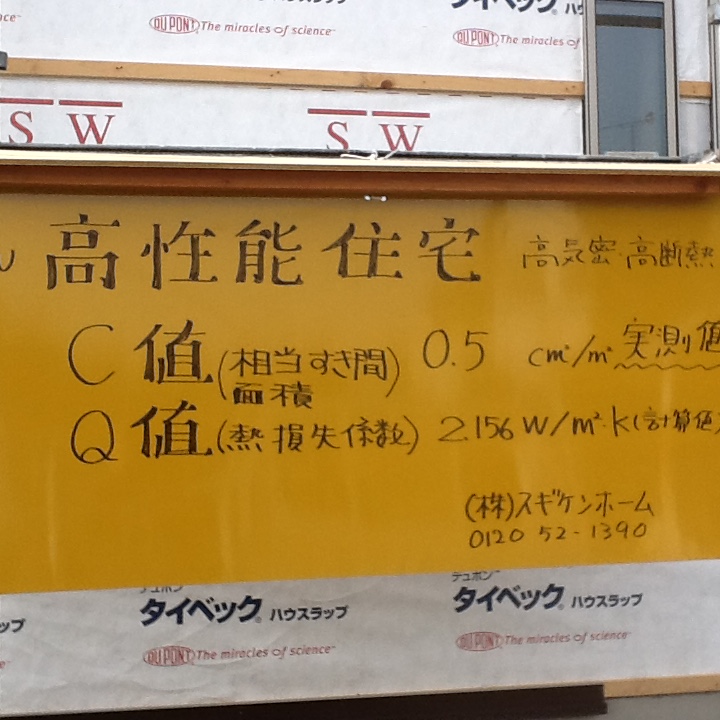 タイベック
DUPONT The miracles of science™
DUPONT The miracles of
S W S W
高性能住宅 高気密・高断熱
C値(相当すき間面積) 0.5 cm²/m² 実測値
Q値(熱損失係数) 2.156 W/m²・K(計算値)
(株)スギケンホーム
0120 52-1390
デュポン™ デュポン™
タイベック® ハウスラップ タイベック® ハウスラップ
DUPONT The miracles of science™ DUPONT The miracles of science™